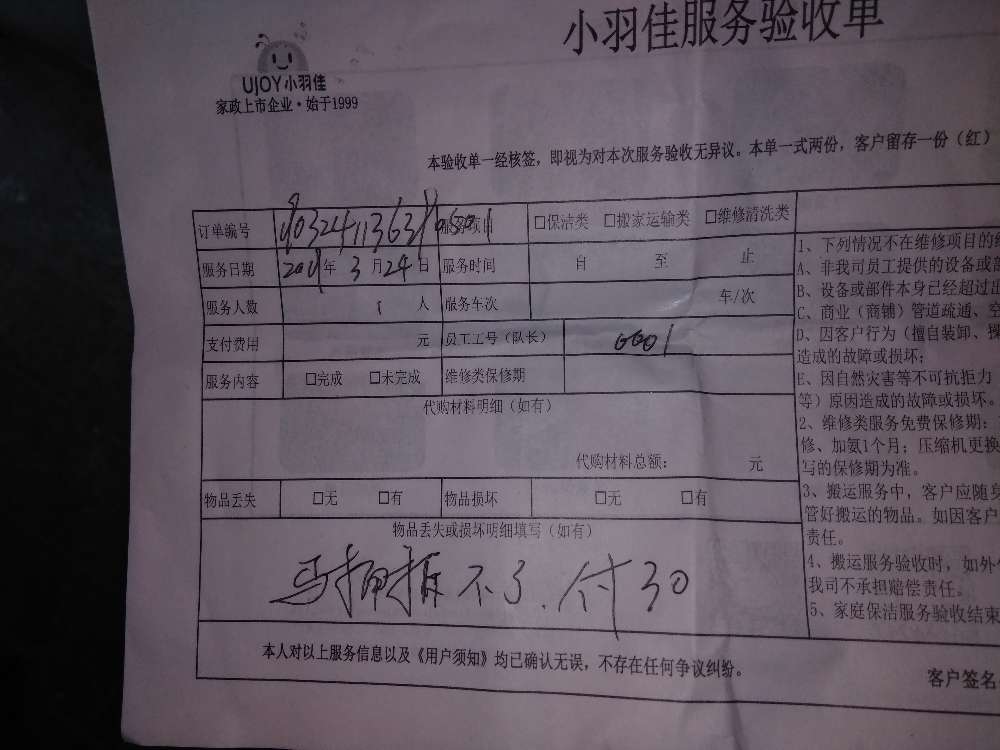 小羽佳服务验收单
UJOY小羽佳
家政上市企业·始于1999
本验收单一经核签，即视为对本次服务验收无异议。本单一式两份，客户留存一份（红）
订单编号 服务项目 □保洁类 □搬家运输类 □维修清洗类
服务日期 年3月24日 服务时间 自 至 止
服务人数 1 人 服务车次 车/次
支付费用 元 员工工号（队长） 0001
服务内容 □完成 □未完成 维修类保修期
代购材料明细（如有）
代购材料总额： 元
物品丢失 □无 □有 物品损坏 □无 □有
物品丢失或损坏明细填写（如有）
马桶拆不了.付30
本人对以上服务信息以及《用户须知》均已确认无误，不存在任何争议纠纷。
客户签名
1、下列情况不在维修项目的
A、非我司员工提供的设备或
B、设备或部件本身已经超过
C、商业（商铺）管道疏通、空
D、因客户行为（擅自装卸、
造成的故障或损坏；
E、因自然灾害等不可抗拒力
等）原因造成的故障或损坏。
2、维修类服务免费保修期：
修、加氨1个月；压缩机更换
写的保修期为准。
3、搬运服务中，客户应随身
管好搬运的物品。如因客户
责任。
4、搬运服务验收时，如外
我司不承担赔偿责任。
5、家庭保洁服务验收结束